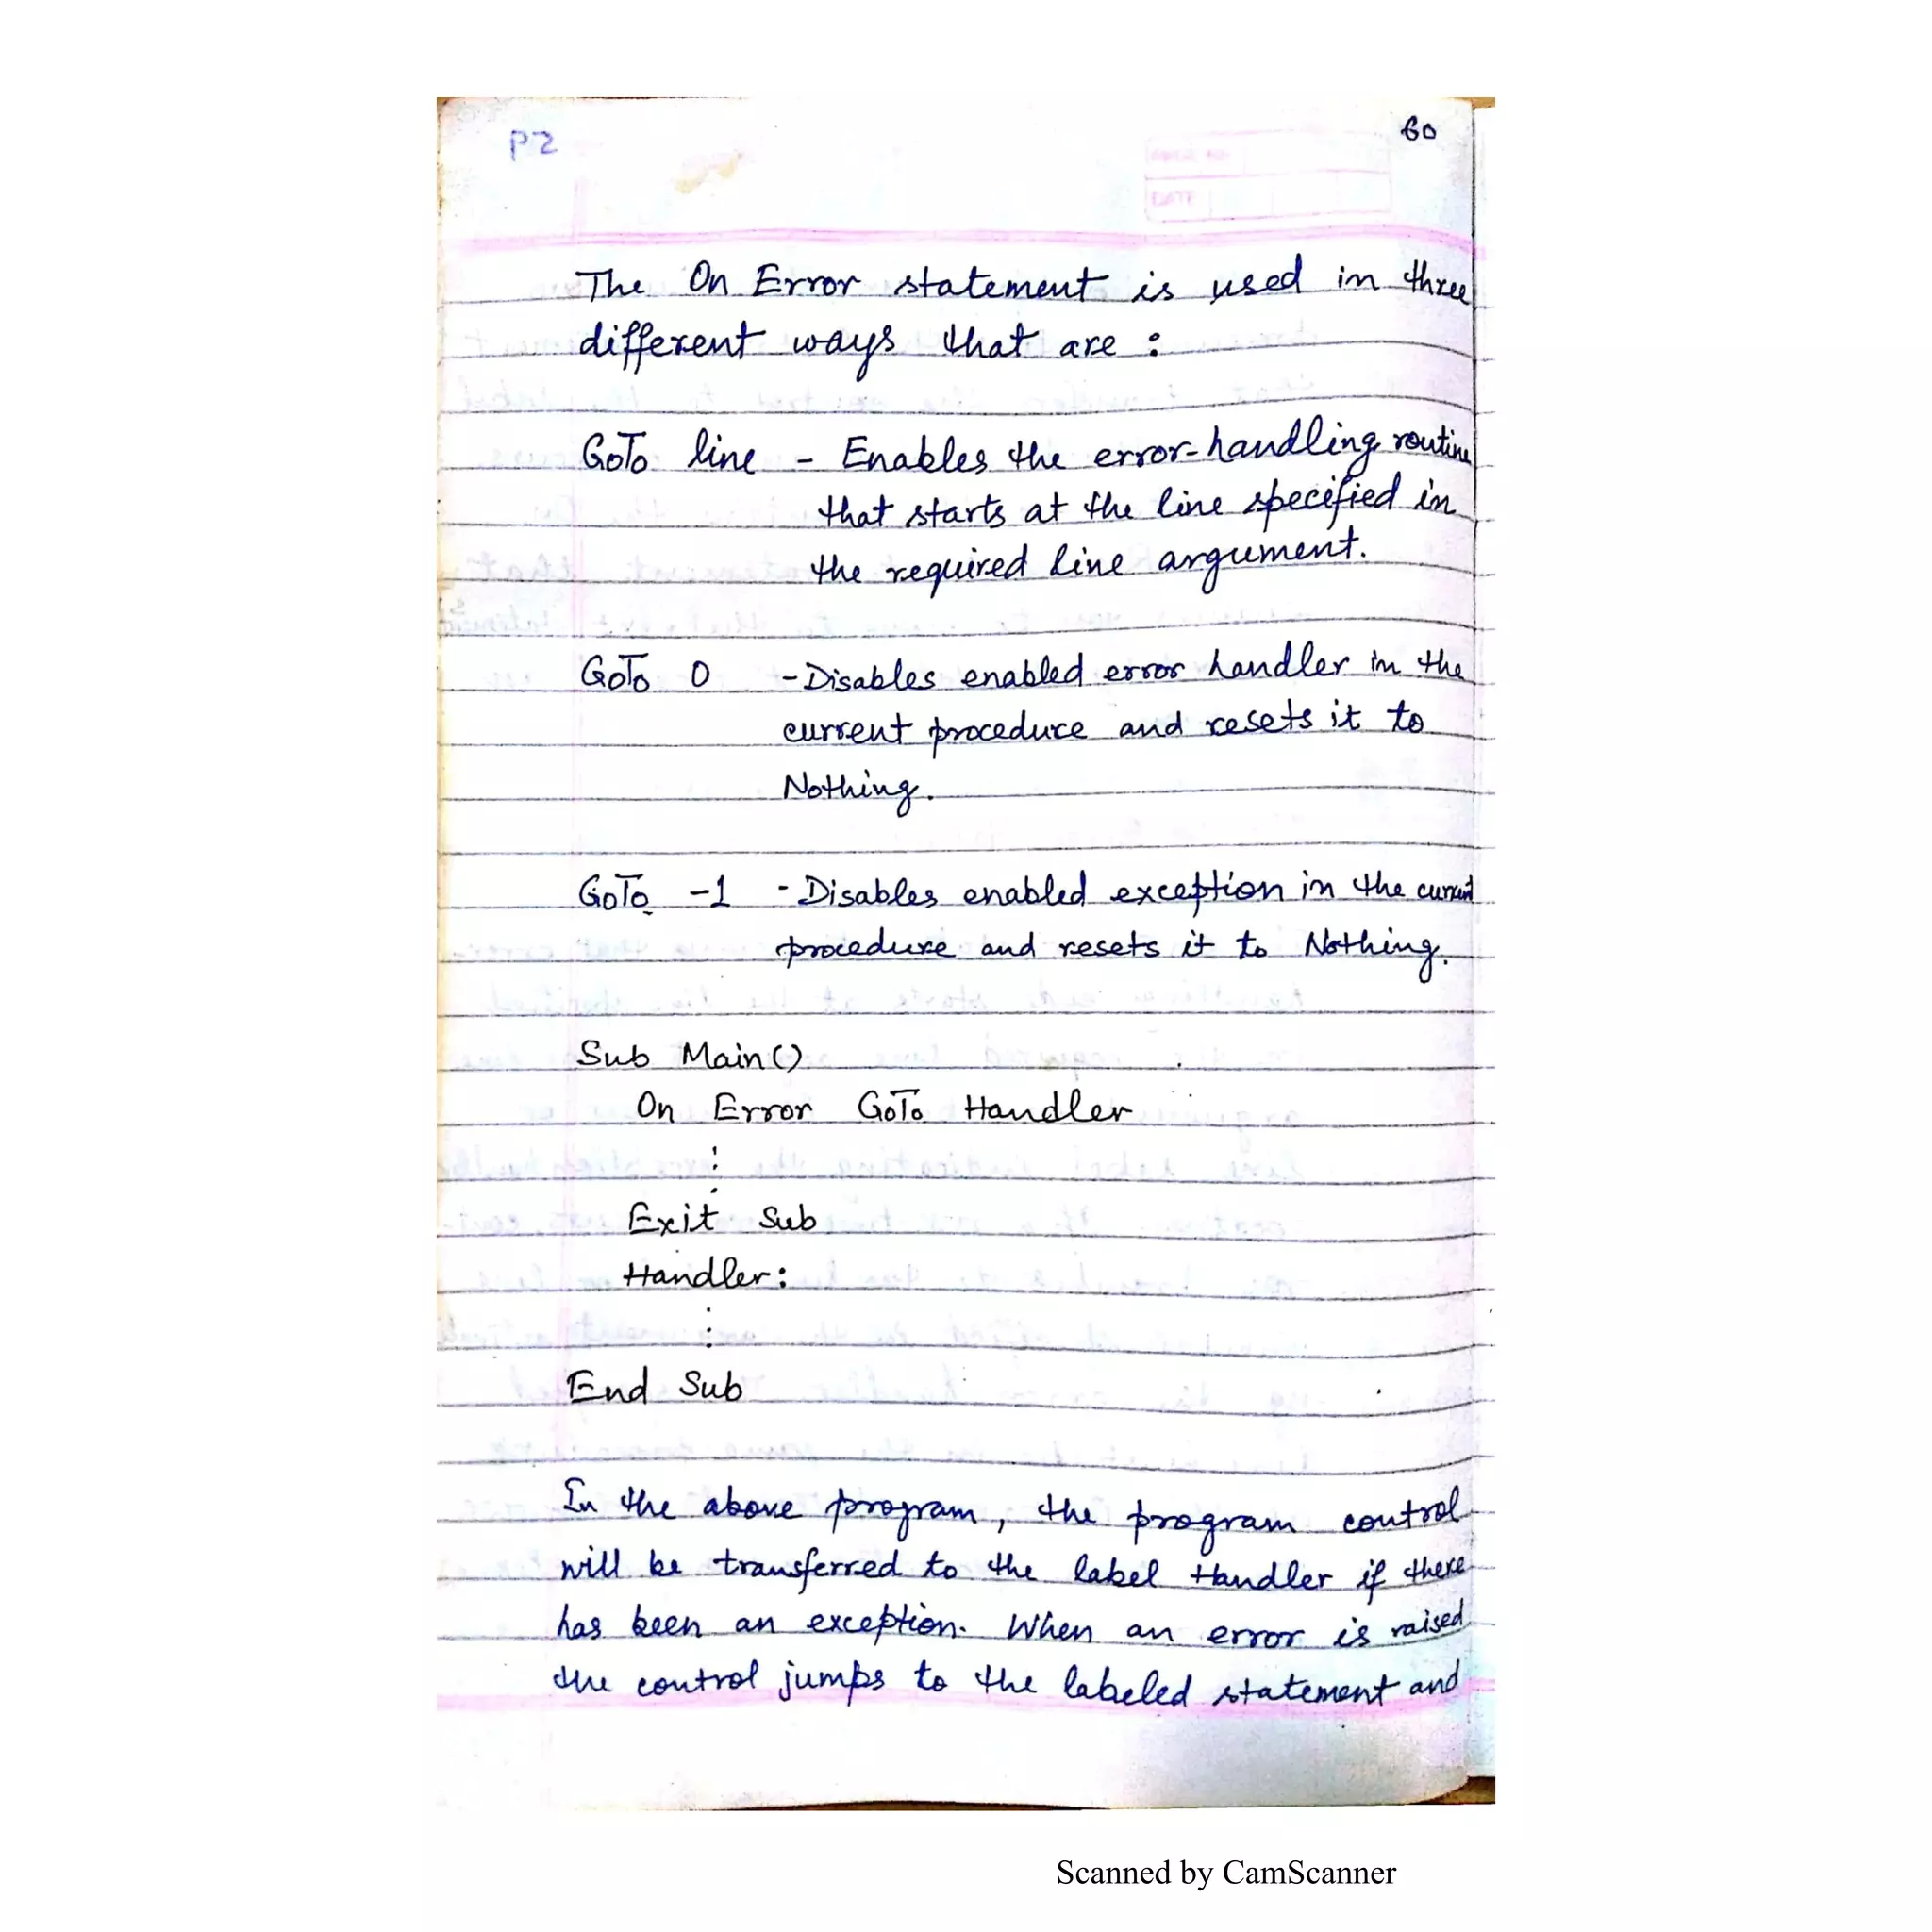 P2
60
DATE
The On Error statement is used in three
different ways that are :
GoTo line - Enables the error-handling routine
that starts at the line specified in
the required line argument.
GoTo 0 - Disables enabled error handler in the
current procedure and resets it to
Nothing.
GoTo -1 - Disables enabled exception in the current
procedure and resets it to Nothing.
Sub Main()
On Error GoTo Handler
:
Exit Sub
Handler:
:
End Sub
In the above program, the program control
will be transferred to the label Handler if there
has been an exception. When an error is raised
the control jumps to the labeled statement and
Scanned by CamScanner